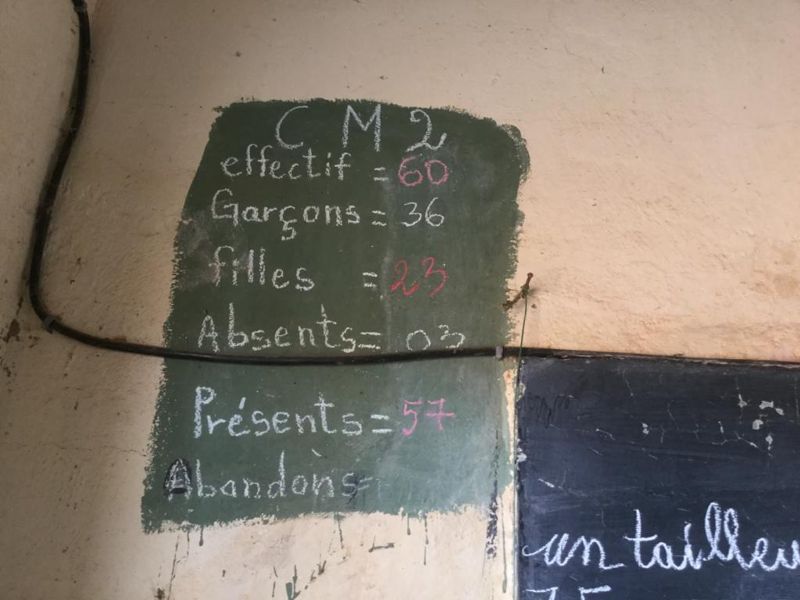 CM2
effectif = 60
Garçons = 36
filles = 23
Absents = 03
Présents = 57
Abandons =
un tailleu